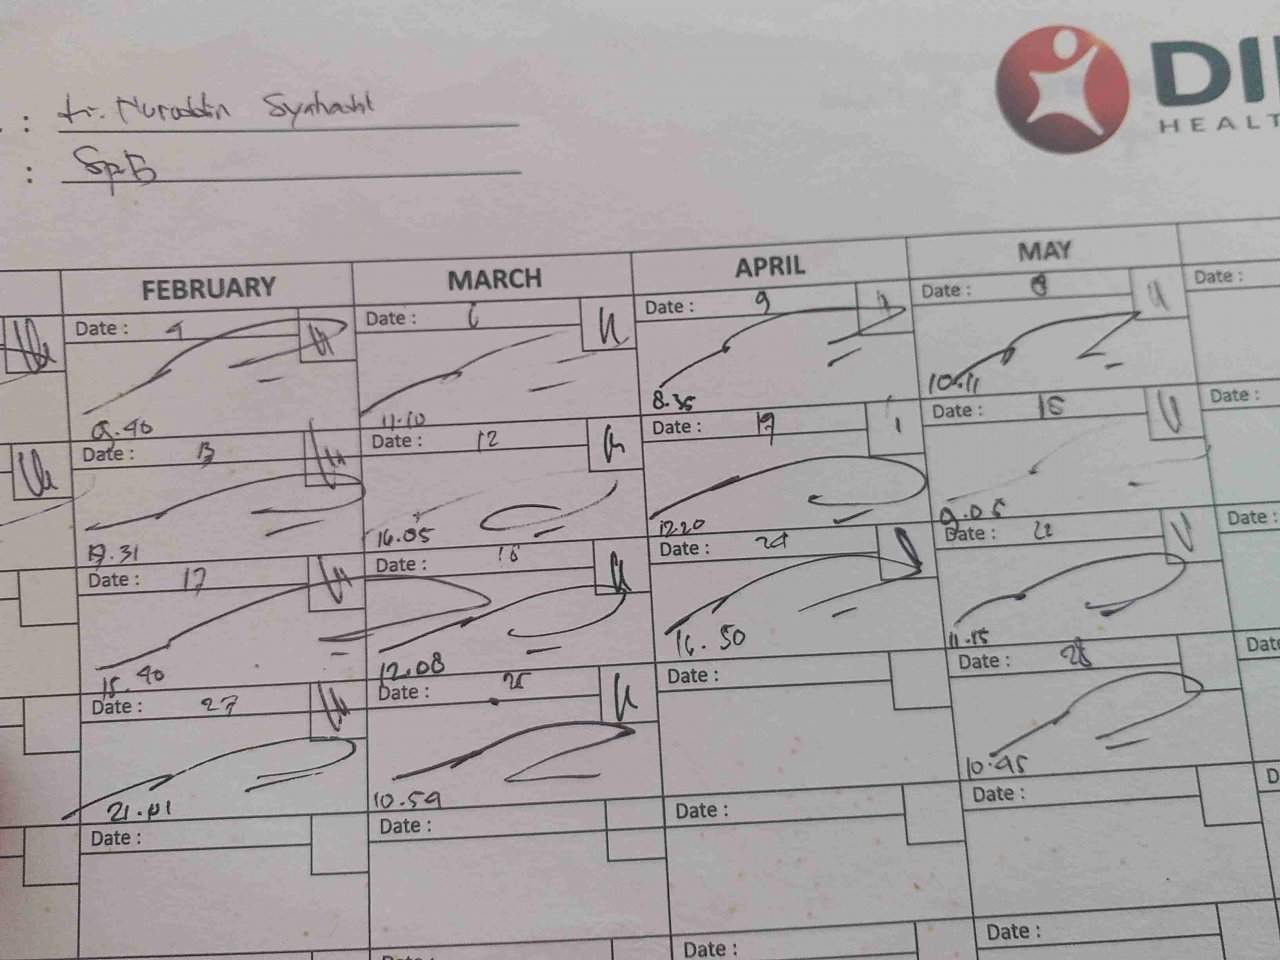 : dr. Nuraddin
: SpB
DI
HEALT
FEBRUARY MARCH APRIL MAY
Date : 4 Date : 6 Date : 9 Date : 8 Date :
9.40 11.10 8.35 10.11
Date : 13 Date : 12 Date : 17 Date : 15 Date :
17.31 16.05 12.20 9.05
Date : 17 Date : 18 Date : 24 Date : 22 Date :
15.40 12.08 16.50 11.15
Date : 27 Date : 25 Date : Date : 28 Date
21.41 10.59 10.45
Date : Date : Date : Date : D
Date : Date : Date :